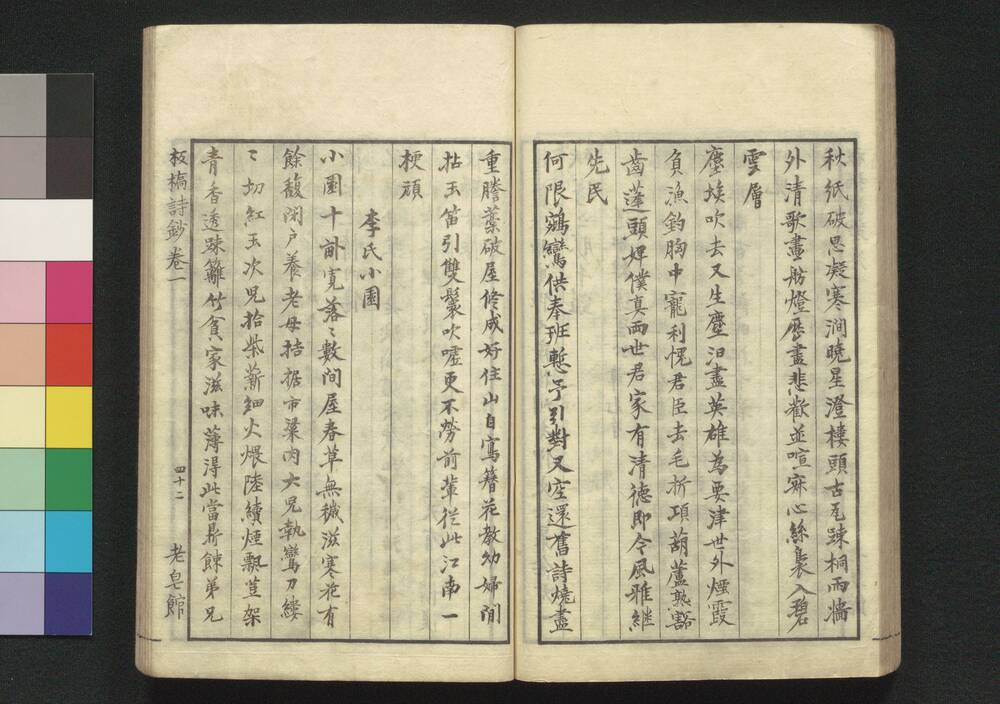 秋紙破思凝寒澗曉星澄樓頭古瓦疎桐雨牆
外清歌畫舫燈歷盡悲歡並喧寂心絲裊入碧
雲層
塵埃吹去又生塵汩盡英雄為要津世外煙霞
負漁釣胸中寵利愧君臣去毛折項葫蘆熟豁
齒蓬頭婢僕真兩世君家有清德即令風雅繼
先民
何限鵷鸞供奉班慙予引對又空還舊詩燒盡
重謄藁破屋修成好住山自寫簪花教幼婦閒
拈玉笛引雙鬟吹噓更不勞前輩從此江南一
梗頑
李氏小園
小園十畝寬落〻數間屋春草無穢滋寒花有
餘馥閉戶養老母拮据市粱肉大兄執鸞刀縷
〻切紅玉次兄拾柴薪細火煨陸續煙飄豆架
青香透踈籬竹貧家滋味薄得此當鼎餗弟兄
板橋詩鈔卷一
四十二
老皂館